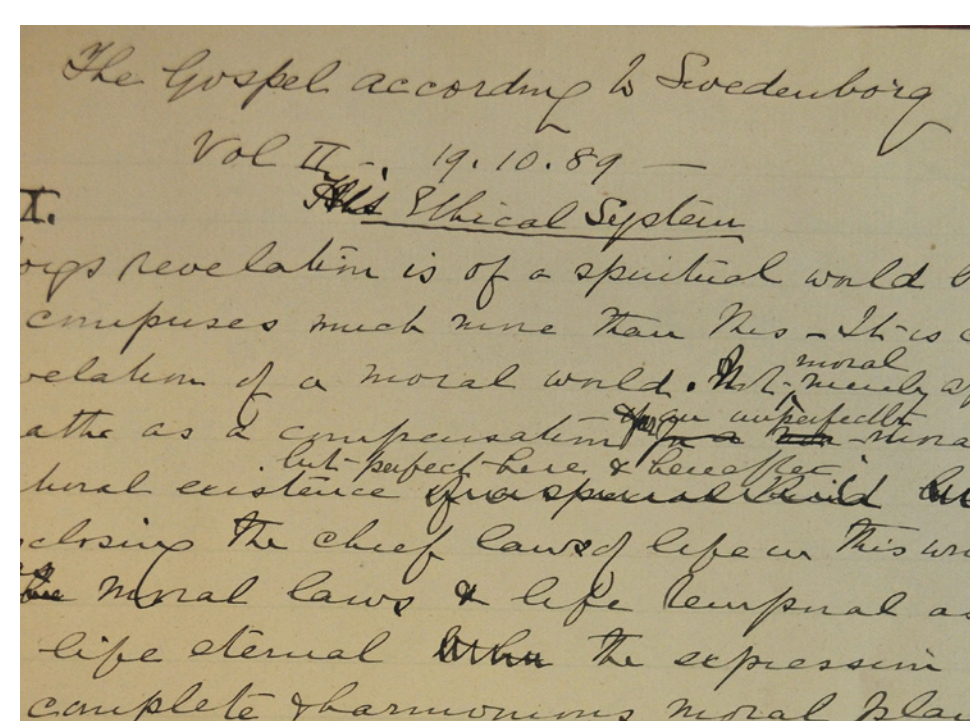 The Gospel according to Swedenborg
Vol II -. 19.10.89 —
I.
His Ethical System
orgs revelation is of a spiritual world
comprises much more than this - It is
velation of a moral world. Not merely
moral
as a compensation for an imperfectly
but perfect here & hereafter
tural existence of a special kind
closing the chief laws of life in this
the moral laws & life temporal
life eternal the expression
complete & harmonious moral